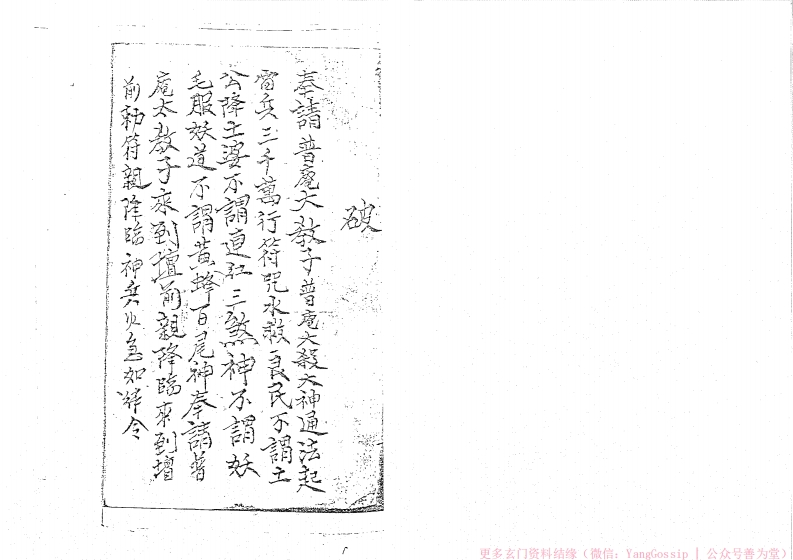 破
奉請普庵大教子普庵大殺大神通法起
雷兵三千萬行符咒水救良民不謂土
公降土婆不謂 三煞神不謂妖
毛服妖道不謂黃蜂百尾神奉請普
庵太教子來到壇前親降臨來到壇
前勅符親降臨神兵火急如律令
更多玄门资料结缘（微信：YangGossip | 公众号善为堂）